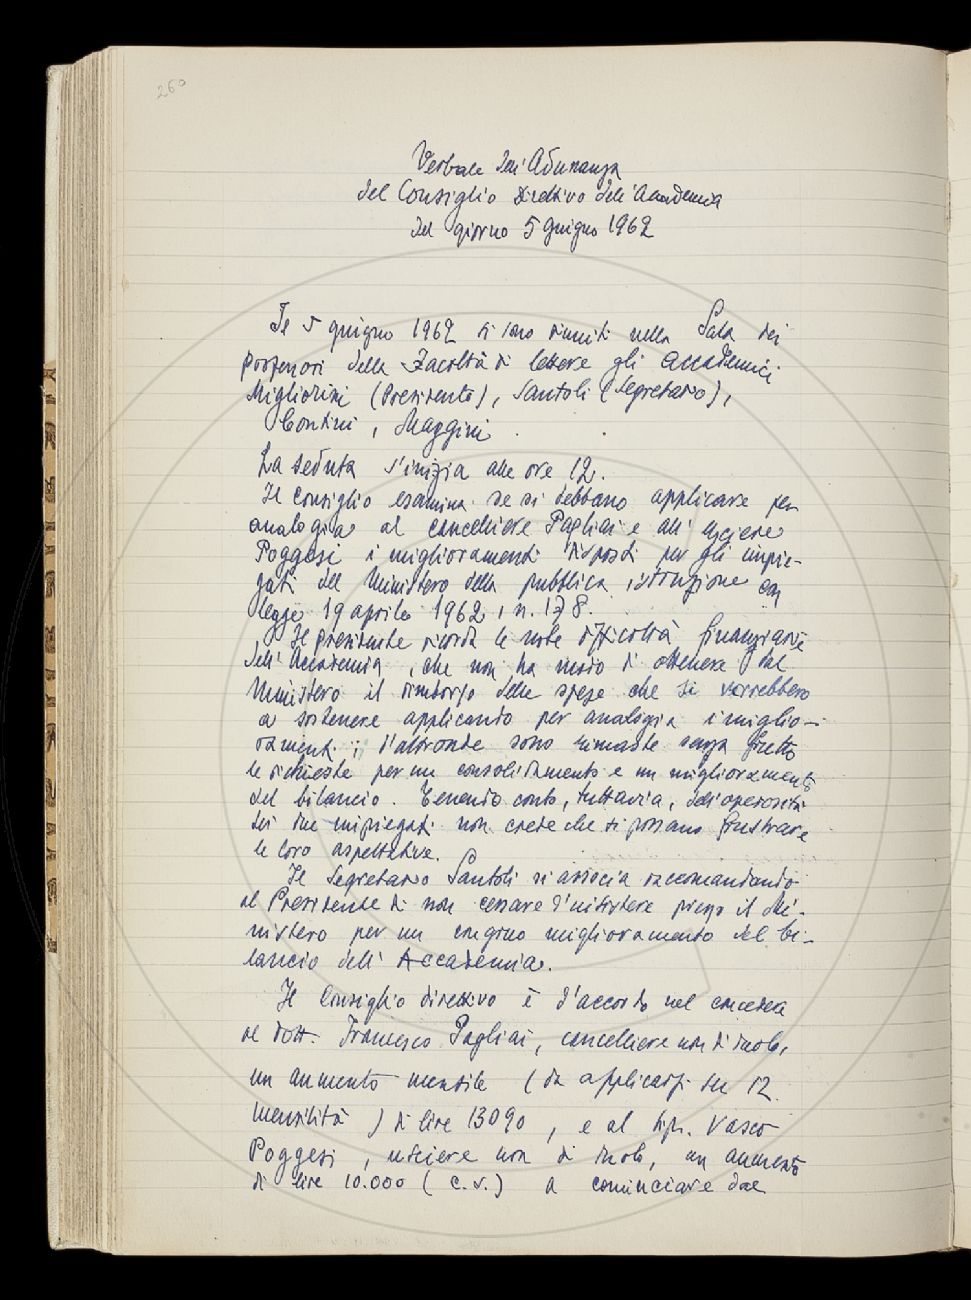 260
Verbale dell'Adunanza
del Consiglio Direttivo dell'Accademia
del giorno 5 giugno 1962
Il 5 giugno 1962 si sono riuniti nella Sala dei
professori della Facoltà di lettere gli accademici
Migliorini (Presidente), Santoli (Segretario),
Contini, Maggini.
La seduta s'inizia alle ore 12.
Il Consiglio esamina se si debbano applicare per
analogia al cancelliere Pagliai e all'usciere
Poggesi i miglioramenti disposti per gli impie-
gati del Ministero della pubblica istruzione con
legge 19 aprile 1962, n. 178.
Il presidente ricorda le note difficoltà finanziarie
dell'Accademia, che non ha modo di ottenere dal
Ministero il rimborso delle spese che si verrebbero
a sostenere applicando per analogia i miglio-
ramenti; d'altronde sono rimaste senza frutto
le richieste per un consolidamento e un miglioramento
del bilancio. Tenendo conto, tuttavia, dell'operosità
dei due impiegati non crede che si possano frustrare
le loro aspettative.
Il Segretario Santoli si associa raccomandando
al Presidente di non cessare d'insistere presso il Mi-
nistero per un congruo miglioramento del bi-
lancio dell'Accademia.
Il Consiglio direttivo è d'accordo nel concedere
al dott. Francesco Pagliai, cancelliere non di ruolo,
un aumento mensile (da applicarsi su 12
mensilità) di lire 13090, e al sig. Vasco
Poggesi, usciere non di ruolo, un aumento
di lire 10.000 (c.s.) a cominciare dal